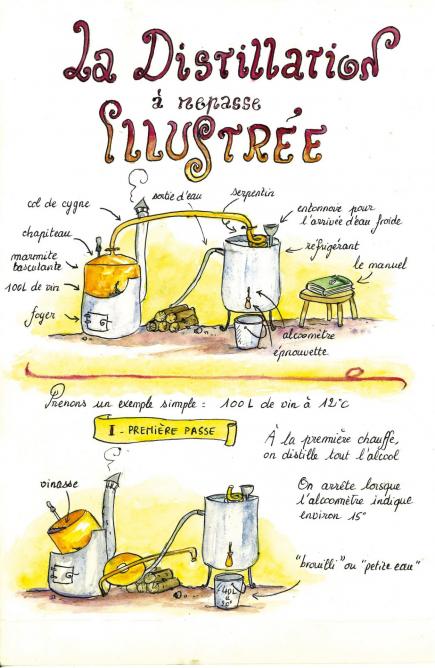 La Distillation
à repasse
Illustrée
col de cygne
sortie d'eau
serpentin
entonnoir pour
l'arrivée d'eau froide
chapiteau
réfrigérant
marmite
basculante
le manuel
100L de vin
foyer
alcoomètre
éprouvette
Prenons un exemple simple : 100 L de vin à 12°C
I - PREMIÈRE PASSE
À la première chauffe,
on distille tout l'alcool
vinasse
On arrête lorsque
l'alcoomètre indique
environ 15°
"brouilli" ou "petite eau"
40L
à
30°